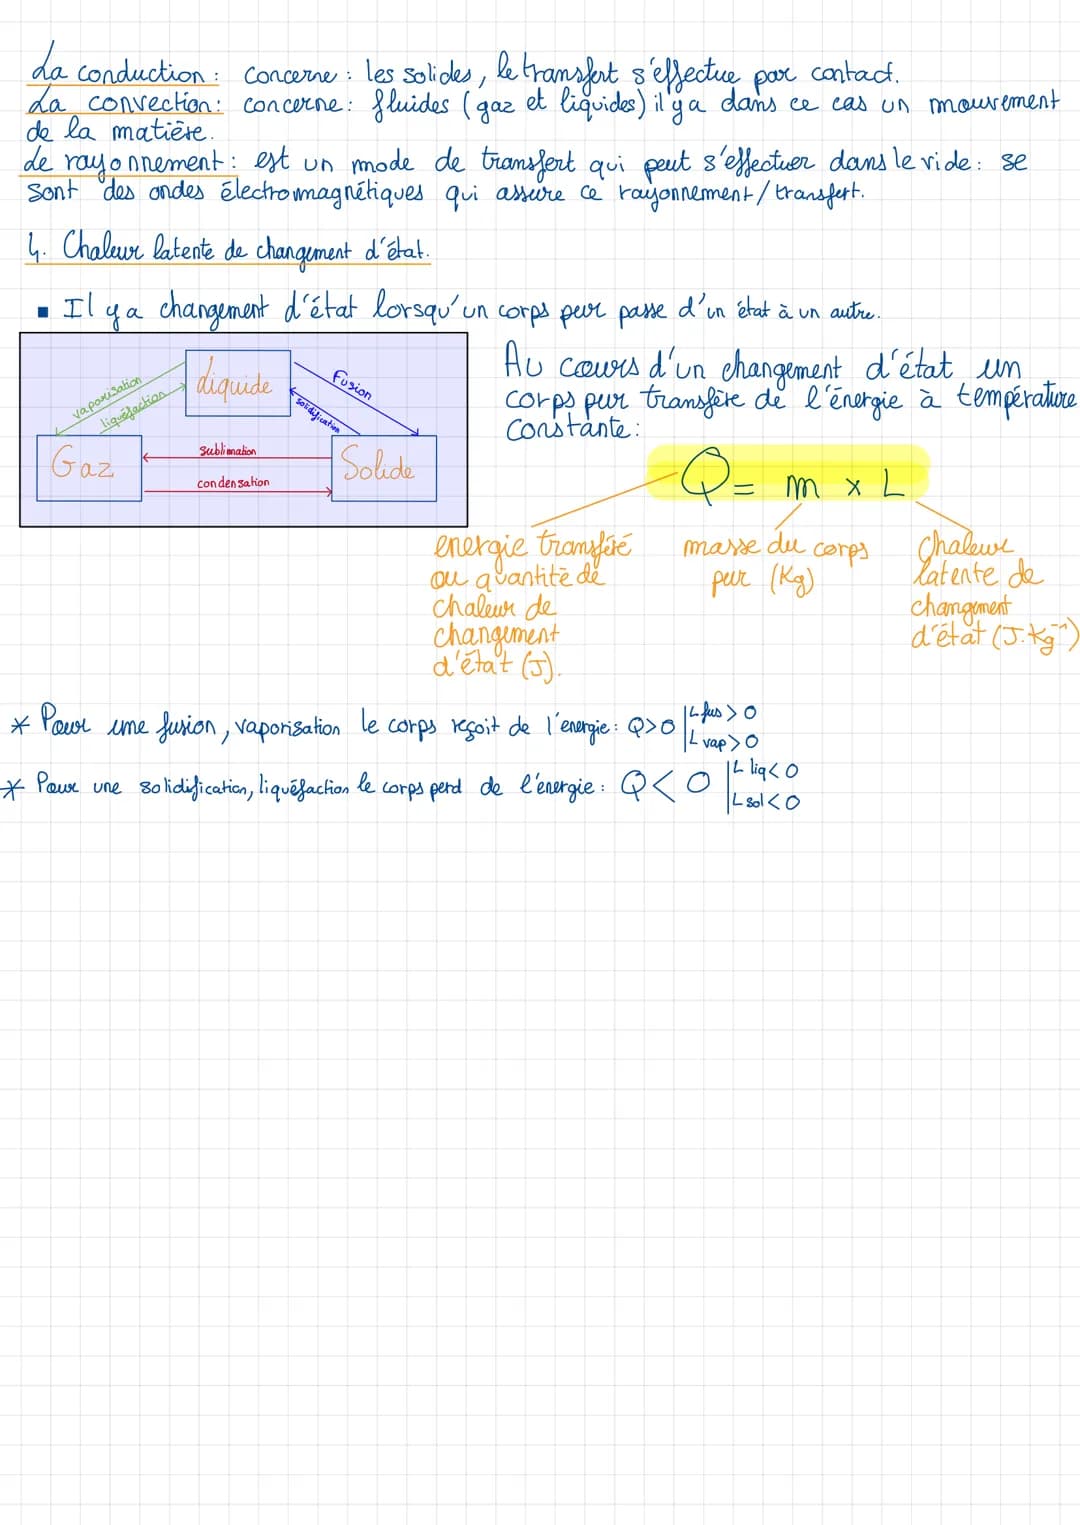 La conduction : concerne : les solides, le transfert s'effectue par contact.
La convection : concerne : fluides (gaz et liquides) il y a dans ce cas un mouvement
de la matière.
Le rayonnement : est un mode de transfert qui peut s'effectuer dans le vide : se
sont des ondes électromagnétiques qui assure ce rayonnement/transfert.
4. Chaleur latente de changement d'état.
▪ Il y a changement d'état lorsqu'un corps peur passe d'un état à un autre.
vaporisation
liquéfaction
Liquide
Fusion
solidification
Gaz
Sublimation
condensation
Solide
Au cours d'un changement d'état un
corps pur transfère de l'énergie à température
constante :
Q = m x L
energie transféré
ou quantité de
chaleur de
changement
d'état (J).
masse du corps
pur (Kg)
Chaleur
latente de
changement
d'état (J.kg⁻¹)
* Pour une fusion, vaporisation le corps reçoit de l'energie : Q>0 | L fus > 0
| L vap > 0
* Pour une solidification, liquéfaction le corps perd de l'énergie : Q < 0 | L liq < 0
| L sol < 0